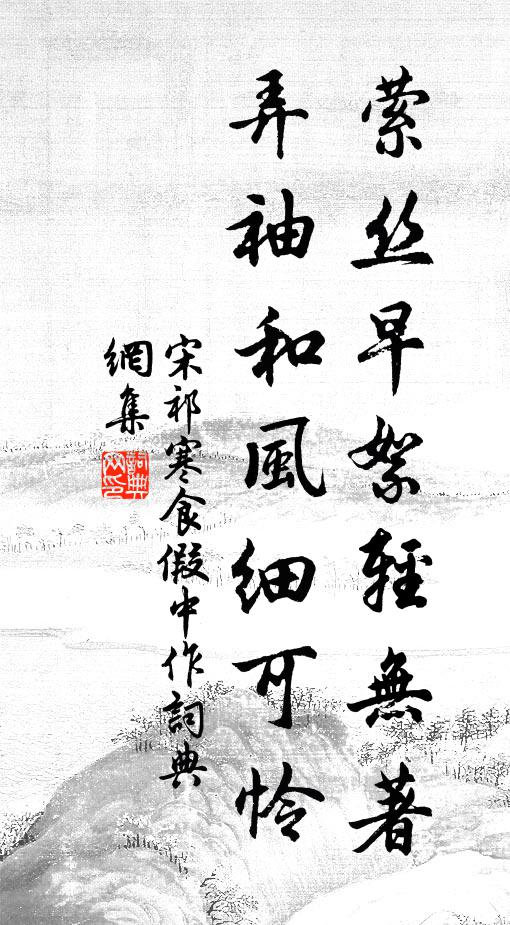 萦丝早絮輕無著
弄袖和風細可怜
宋祁寒食假中作詞典
網集
詞典網印